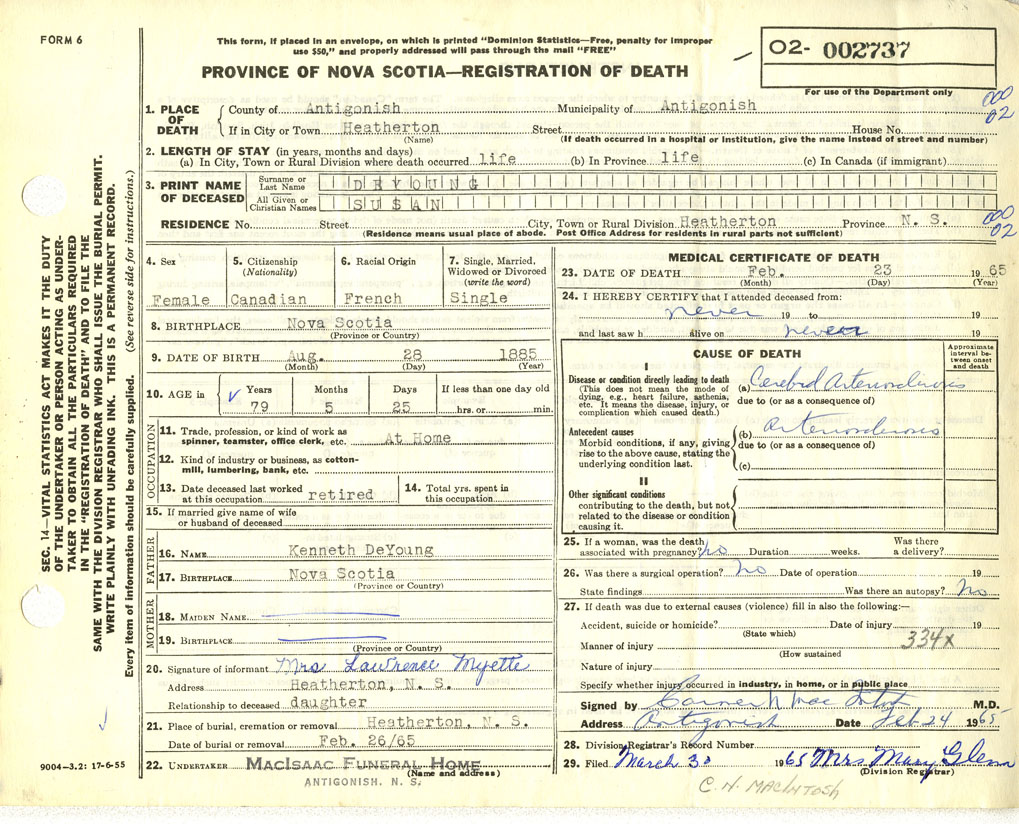 FORM 6
This form, if placed in an envelope, on which is printed "Dominion Statistics—Free, penalty for improper
use $50," and properly addressed will pass through the mail "FREE"
PROVINCE OF NOVA SCOTIA—REGISTRATION OF DEATH
02- 002737
For use of the Department only
000
02
1. PLACE OF DEATH
County of Antigonish Municipality of Antigonish
If in City or Town Heatherton Street House No.
(Name) (If death occurred in a hospital or institution, give the name instead of street and number)
2. LENGTH OF STAY (in years, months and days)
(a) In City, Town or Rural Division where death occurred life (b) In Province life (c) In Canada (if immigrant)
3. PRINT NAME OF DECEASED
Surname or Last Name DEYOUNG
All Given or Christian Names SUSAN
RESIDENCE No. Street City, Town or Rural Division Heatherton Province N. S.
(Residence means usual place of abode. Post Office Address for residents in rural parts not sufficient)
000
02
4. Sex
Female
5. Citizenship
(Nationality)
Canadian
6. Racial Origin
French
7. Single, Married,
Widowed or Divorced
(write the word)
Single
8. BIRTHPLACE Nova Scotia
(Province or Country)
9. DATE OF BIRTH Aug. 28 1885
(Month) (Day) (Year)
10. AGE in
Years Months Days If less than one day old
79 5 25 hrs. or min.
OCCUPATION
11. Trade, profession, or kind of work as
spinner, teamster, office clerk, etc. At Home
12. Kind of industry or business, as cotton-
mill, lumbering, bank, etc.
13. Date deceased last worked
at this occupation retired
14. Total yrs. spent in
this occupation
15. If married give name of wife
or husband of deceased
FATHER
16. NAME Kenneth DeYoung
17. BIRTHPLACE Nova Scotia
(Province or Country)
MOTHER
18. MAIDEN NAME
19. BIRTHPLACE
(Province or Country)
20. Signature of informant Mrs Lawrence Myette
Address Heatherton, N. S.
Relationship to deceased daughter
21. Place of burial, cremation or removal Heatherton, N. S.
Date of burial or removal Feb. 26/65
22. UNDERTAKER MACISAAC FUNERAL HOME
(Name and address)
ANTIGONISH, N. S.
MEDICAL CERTIFICATE OF DEATH
23. DATE OF DEATH Feb. 23 1965
(Month) (Day) (Year)
24. I HEREBY CERTIFY that I attended deceased from:
never 19 to 19
and last saw h alive on never 19
CAUSE OF DEATH
Approximate
interval be-
tween onset
and death
I
Disease or condition directly leading to death
(This does not mean the mode of
dying, e.g., heart failure, asthenia,
etc. It means the disease, injury, or
complication which caused death.)
(a) Cerebral Arteriosclerosis
due to (or as a consequence of)
Antecedent causes
Morbid conditions, if any, giving
rise to the above cause, stating the
underlying condition last.
(b) Arteriosclerosis
due to (or as a consequence of)
(c)
II
Other significant conditions
contributing to the death, but not
related to the disease or condition
causing it.
25. If a woman, was the death
associated with pregnancy? No Duration weeks. Was there
a delivery?
26. Was there a surgical operation? No Date of operation 19
State findings Was there an autopsy? No
27. If death was due to external causes (violence) fill in also the following:—
Accident, suicide or homicide? Date of injury 19
(State which)
Manner of injury 334x
(How sustained
Nature of injury
Specify whether injury occurred in industry, in home, or in public place
Signed by M.D.
Address Antigonish Date Feb 24 1965
28. Division Registrar's Record Number
29. Filed March 3 1965 Mrs Mary Glenn
(Division Registrar)
C. N. MACINTOSH
SEC. 14—VITAL STATISTICS ACT MAKES IT THE DUTY
OF THE UNDERTAKER OR PERSON ACTING AS UNDER-
TAKER TO OBTAIN ALL THE PARTICULARS REQUIRED
IN THE "REGISTRATION OF DEATH" AND TO FILE THE
SAME WITH THE DIVISION REGISTRAR WHO SHALL ISSUE THE BURIAL PERMIT.
WRITE PLAINLY WITH UNFADING INK. THIS IS A PERMANENT RECORD.
Every item of information should be carefully supplied. (See reverse side for instructions.)
9004-3.2: 17-6-55